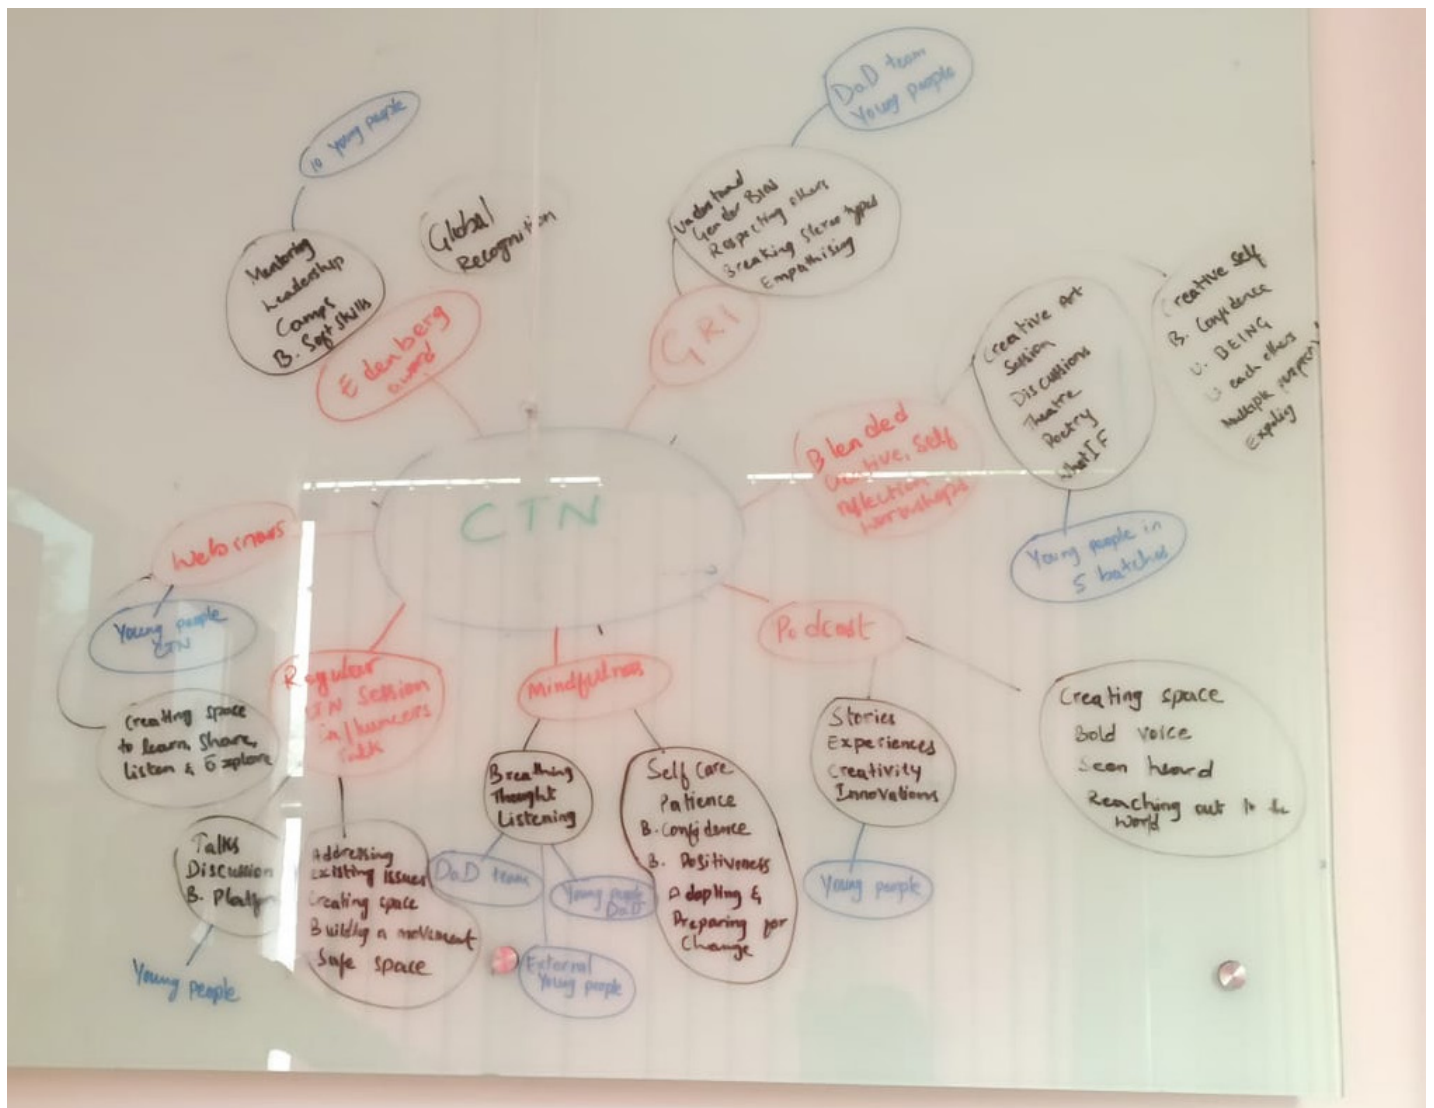 DaD team
Young people
10 Young people
Global
Recognition
Understand
Gender Bias
Respecting others
Breaking Stereo types
Empathising
Mentoring
Leadership
Camps
B. Soft Skills
Edenberg
award
GRI
Creative Art
Session
Discussions
Theatre
Poetry
What IF
Creative self
B. Confidence
U. BEING
U each others
Multiple
Blended
Creative, Self
reflection
workshops
Young people in
5 batches
CTN
Webinars
Young people
CTN
Creating space
to learn, Share,
Listen & Explore
Regular
CTN Session
influencers
Talk
Talks
Discussion
B. Platform
Young people
Addressing
Existing Issues
Creating space
Building a movement
Safe space
Mindfulness
Breathing
Thought
Listening
DaD team
Young people
DaD
External
Young people
Self Care
Patience
B. Confidence
B. Positiveness
Adapting &
Preparing for
Change
Podcast
Stories
Experiences
Creativity
Innovations
Young people
Creating space
Bold voice
Seen heard
Reaching out to the
world